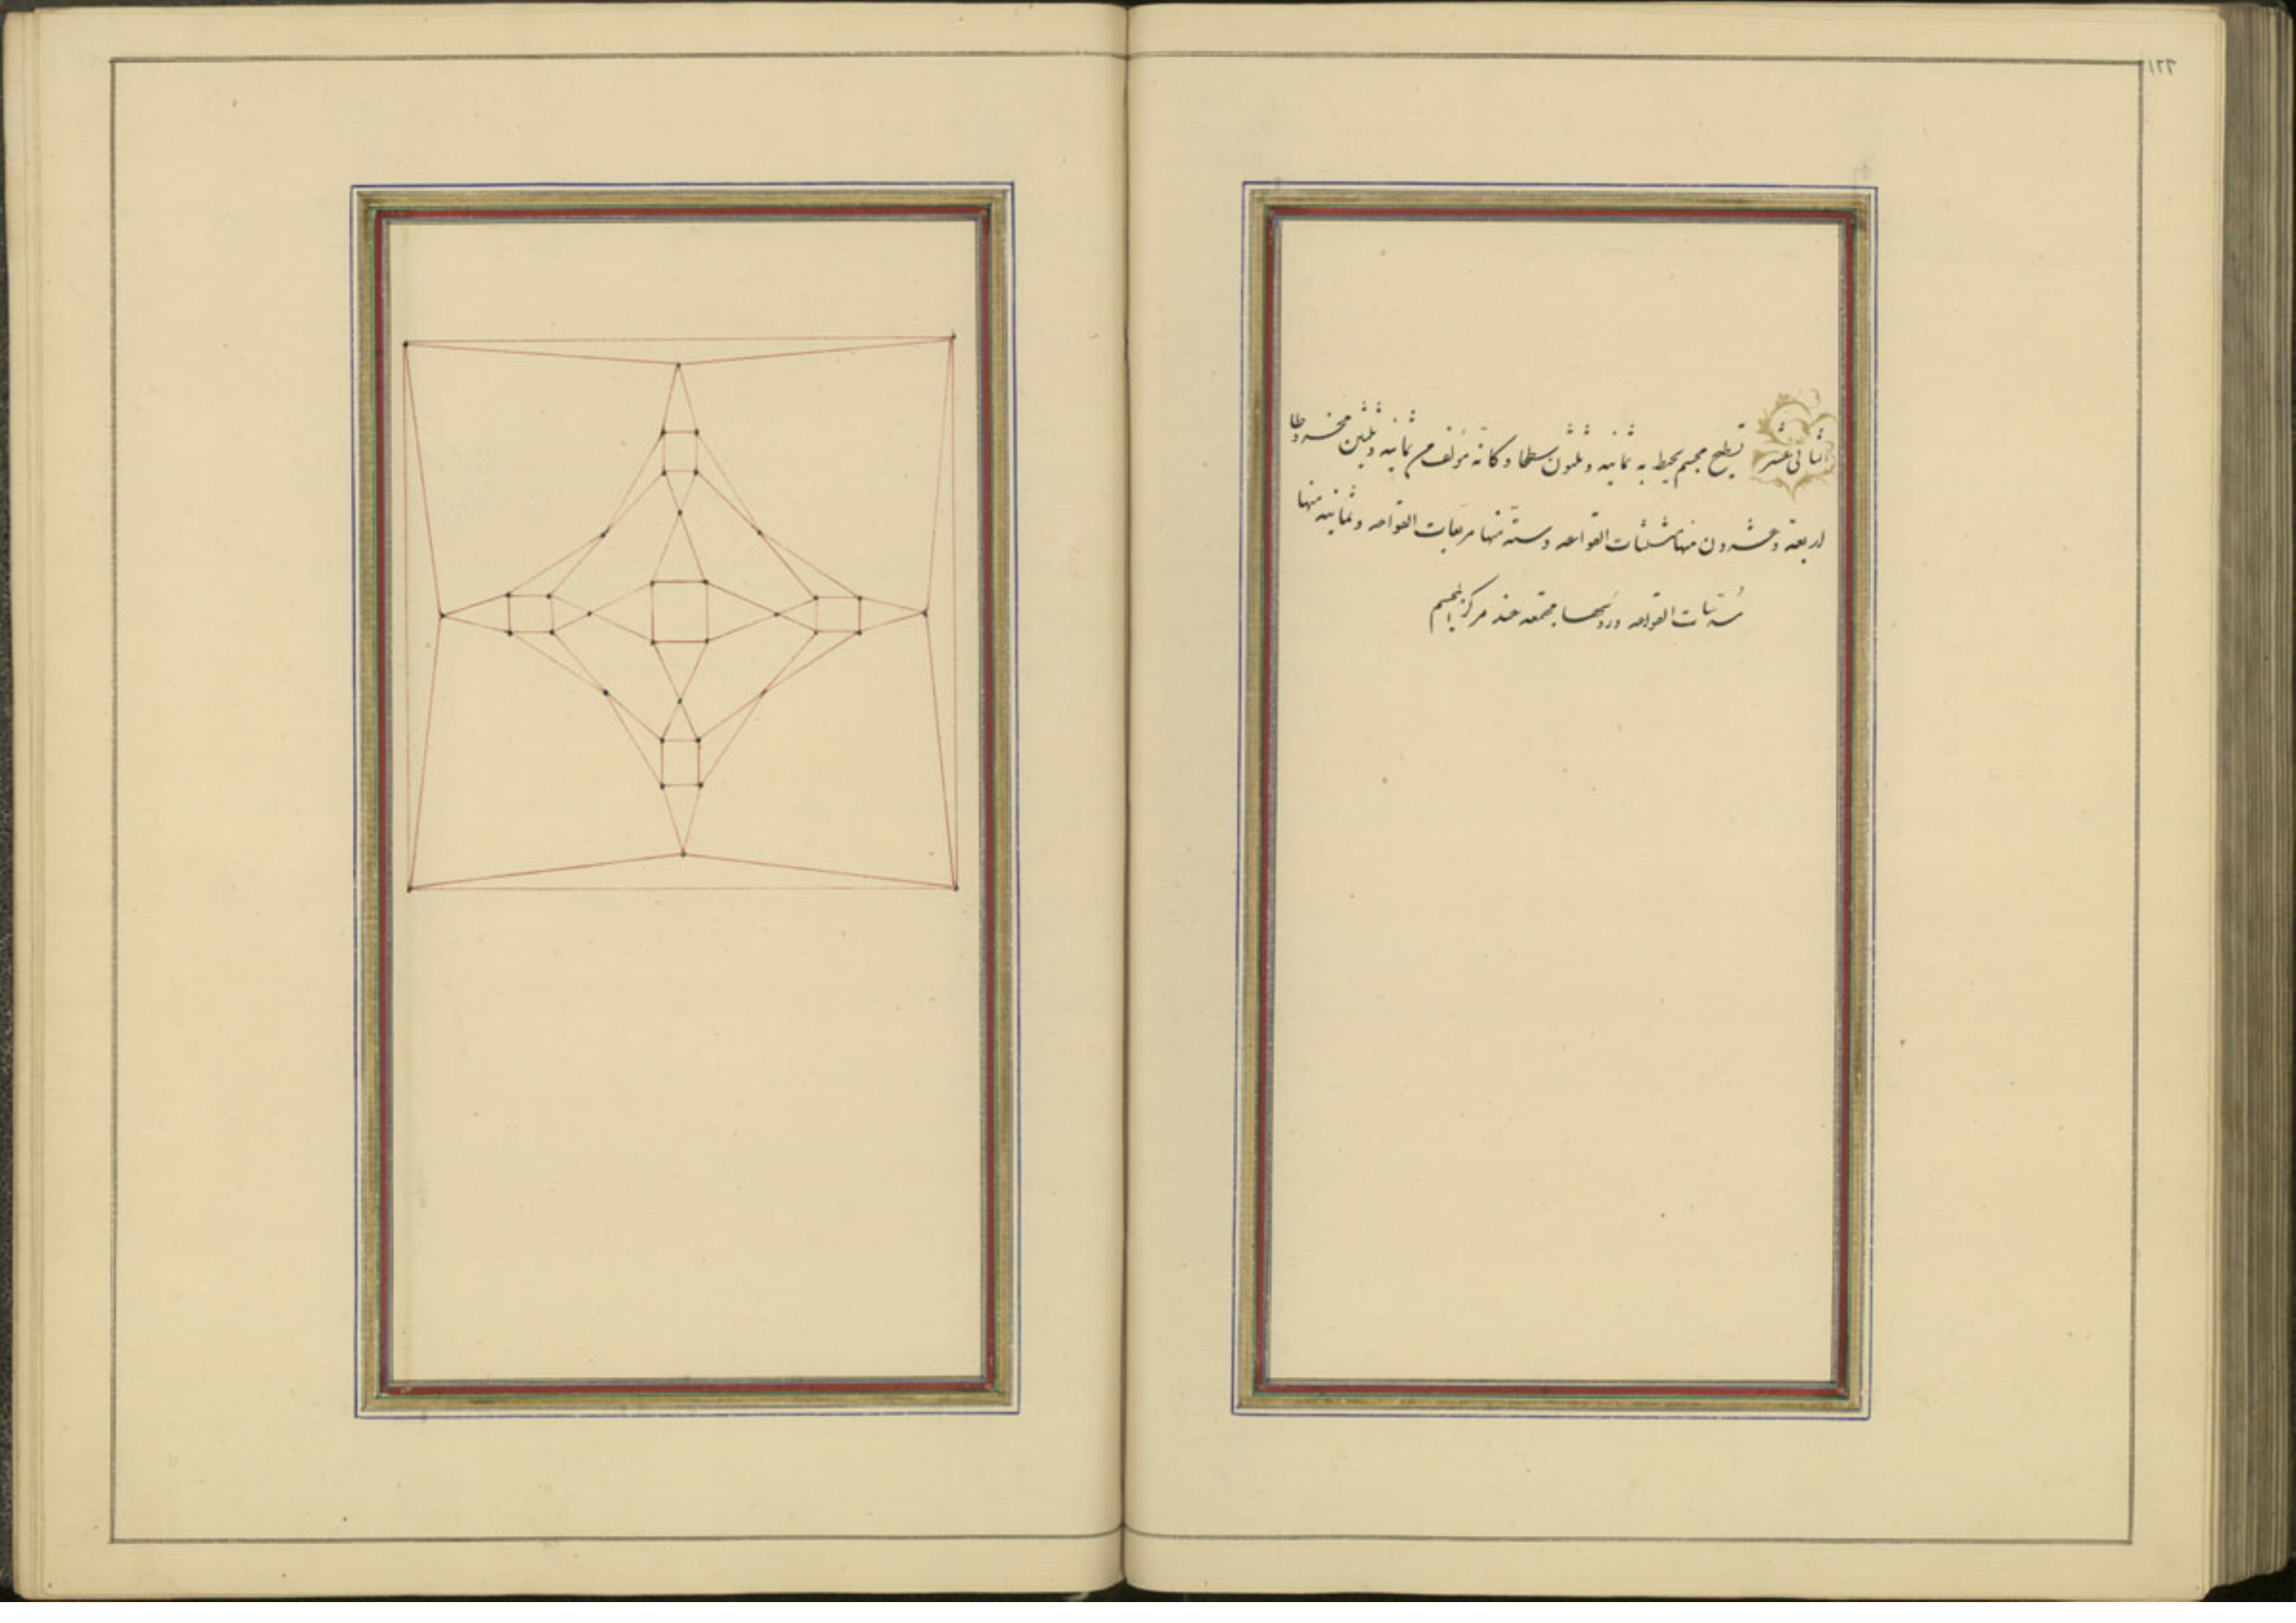 ١٢٢
الثانى عشر تسطيح مجسم يحيط به ثمانيه و ثلثون سطحا و كانه مؤلف من ثمانيه و ثلثين مخروطا
اربعة و عشرون منها مثلثات القواعد و ستة منها مربعات القواعد و ثمانيه منها
القواعد و رؤسها مجتمعه عند مركز المجسم